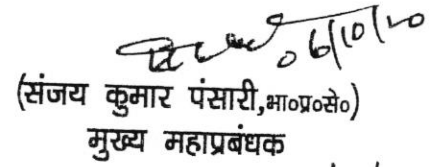 06/10/20
(संजय कुमार पंसारी,भा०प्र०से०)
मुख्य महाप्रबंधक